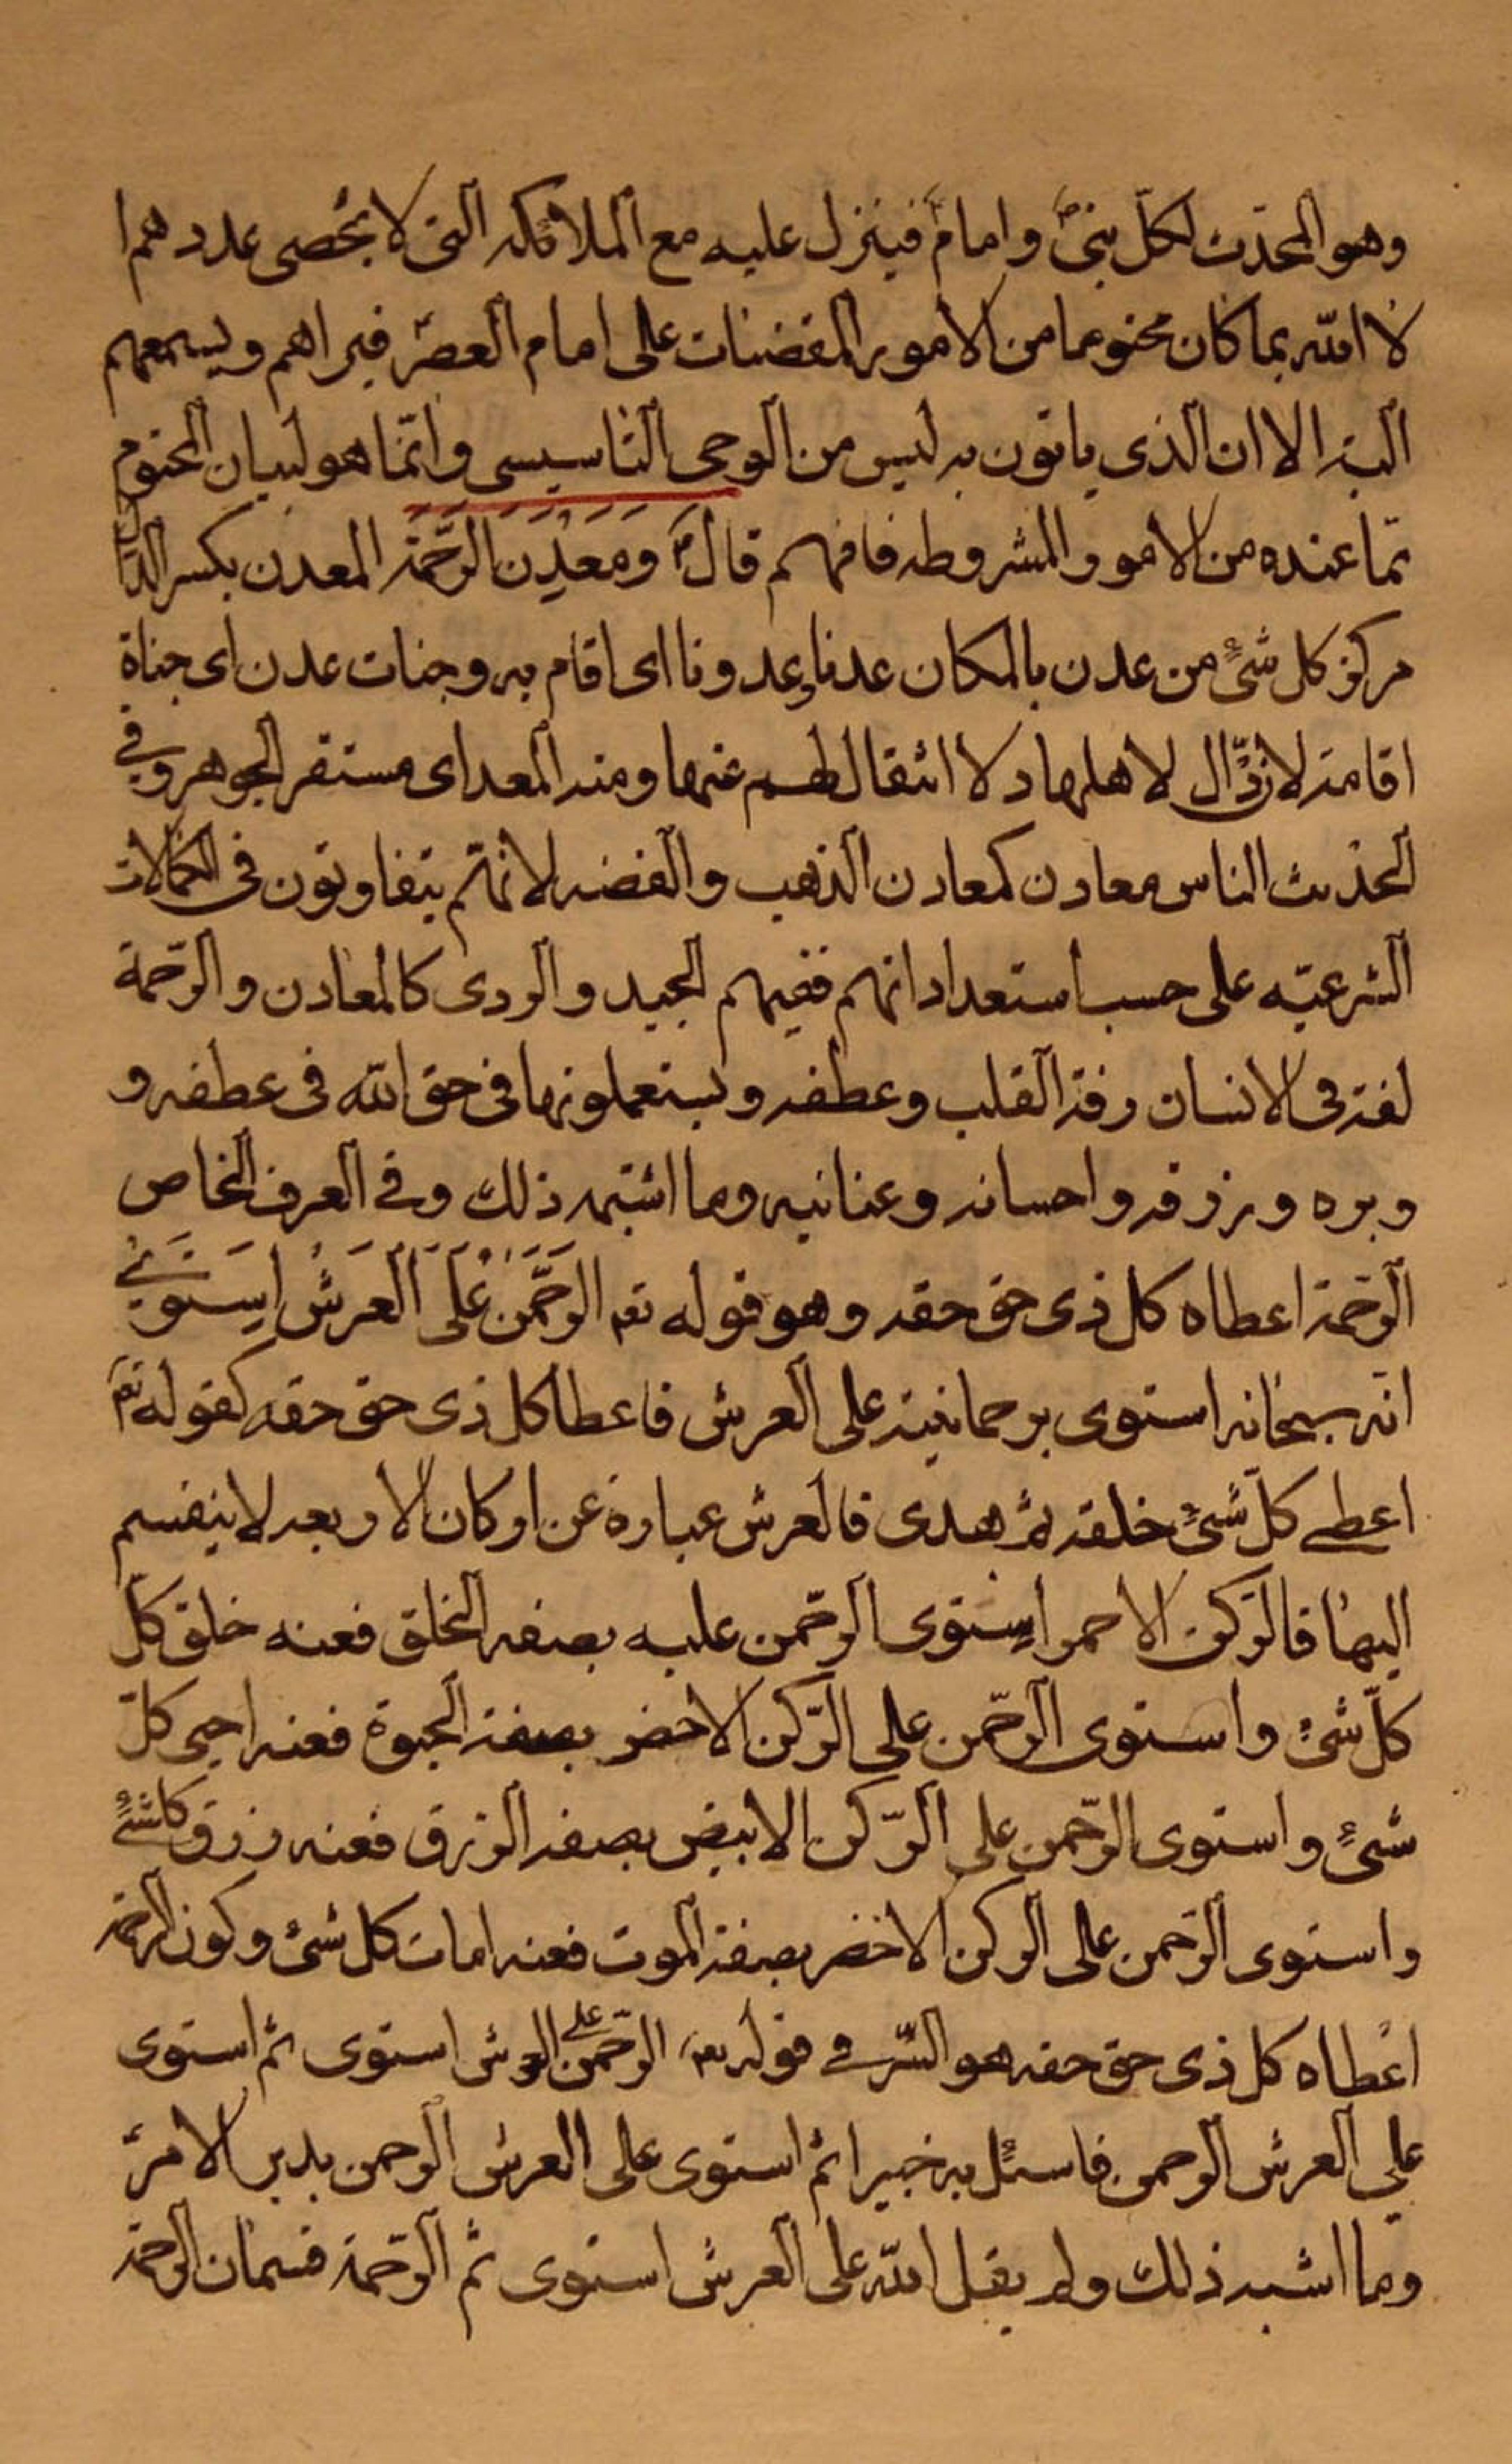 وهو المحدّث لكلّ نبىّ وامام فينزل عليه مع الملائكه التى لا يحصى عددهم ا
لا اللّه بما كان محتوما من الامور المقضيات على امام العصر فيراهم ويسمعهم
البته الا ان الذى ياتون به ليس من الوحى التاسيسى وانّما هو لبيان المحتوم
ممّا عنده من الامور المشروطه فافهم قال ومَعْدِنَ الرَّحْمَة المعدن بكسر الدال
مركز كل شئٍ من عدن بالمكان عدنا وعدونا اى اقام به وجنات عدن اى جناة
اقامة لا زوّال لاهلها ولا انتقال لهم عنها ومنه المعدای مستقر الجوهر وفي
الحديث الناس معادن كمعادن الذهب والفضه لانهّم يتفاوتون فى الكمالات
الشرعيّه على حسب استعداداتهم ففيهم الجيد والردى كالمعادن والرّحمة
لغة فى الانسان رقة القلب وعطفه ويستعملونها فى حق اللّه فى عطفه و
وبره ورزقه واحسانه وعنانيه وما اشبه ذلك وفے العرف الخاص
الرّحمة اعطاه كل ذى حق حقه وهو قوله تعم الرَّحْمَن عَلَى العَرش اسِتَوى
انّه سبحانه استوى برحمانيته على العرش فاعطا كل ذى حق حقه كقوله تعم
اعطے كلّ شئٍ خلقه ثم هدى فالعرش عبارة عن اركان الاربعه لا ينقسم
اليها فالرّكن الاحمر استوى الرّحمن عليه بصفه الخلق فعنه خلق كلّ
كلّ شئٍ واستوى الرّحمن على الرّكن الاخضر بصفة الحيوة فعنه احيى كلّ
شئٍ واستوى الرّحمن على الرّكن الابيض بصفه الرزق فعنه رزق كل شئٍ
واستوى الرّحمن على الركن الاخضر بصفة الموت فعنه امات كل شئ وكون الرحمة
اعطاه كل ذى حق حقه هو السّر فے قوله تعم الرّحمن على العرش استوى ثم استوى
على العرش الرحمن فاسئل به خبيرا ثم استوى على العرش الرحمن يدبر الامر
وما اشبه ذلك ولم يقل اللّه على العرش استوى ثم الرّحمة قسمان الرحمة